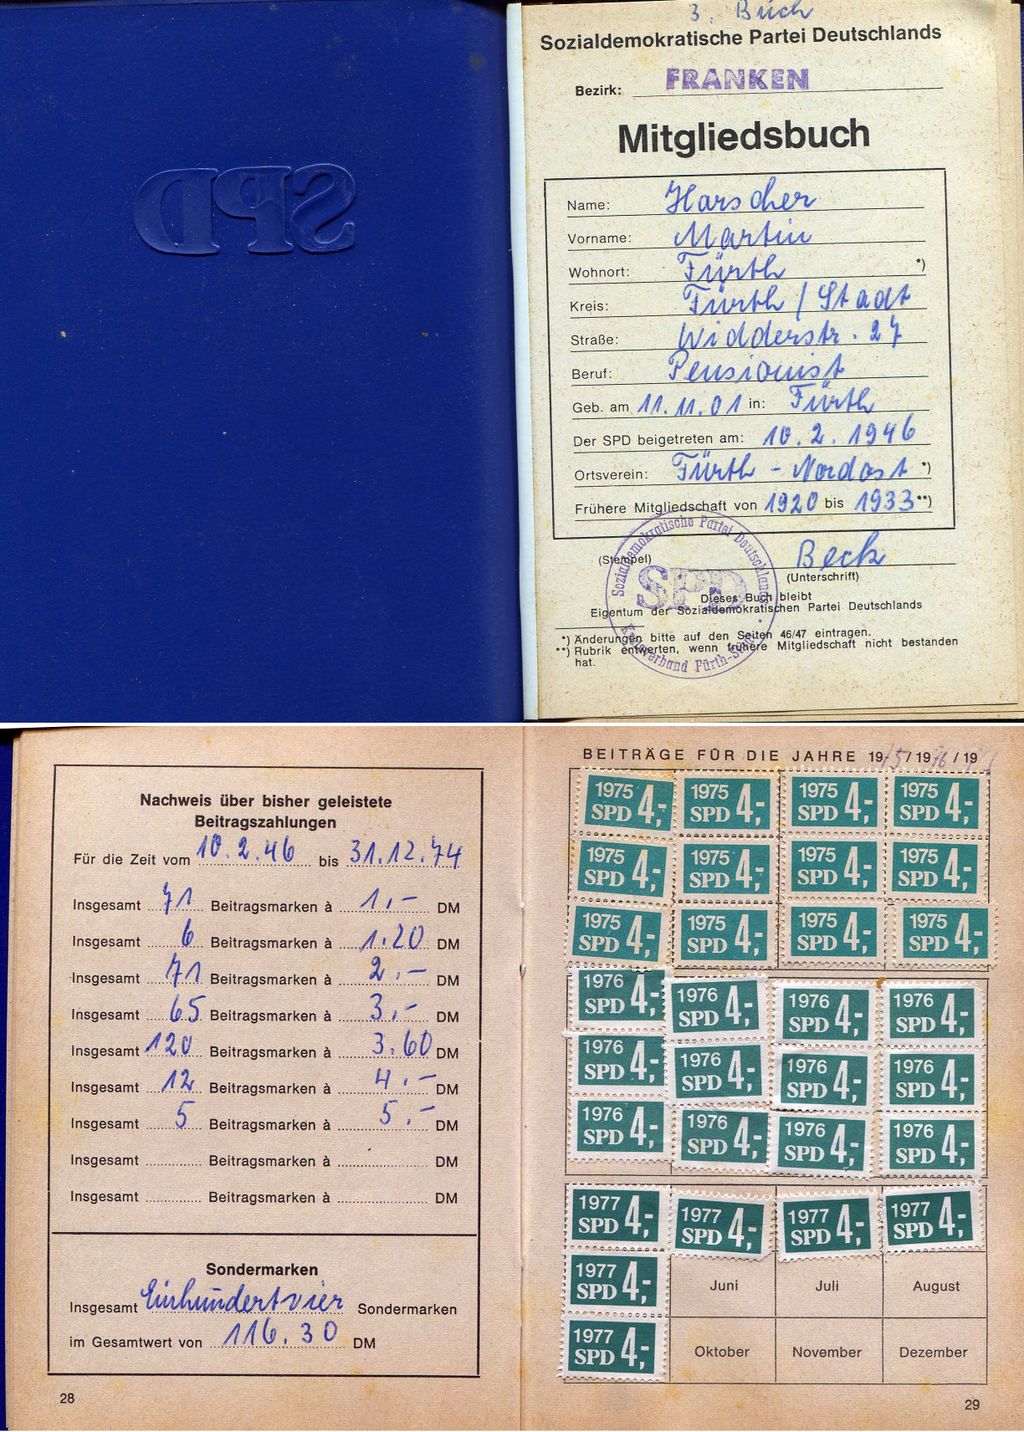 SPD
3. Buch
Sozialdemokratische Partei Deutschlands
Bezirk: FRANKEN
Mitgliedsbuch
Name: Harscher
Vorname: Martin
Wohnort: Fürth *)
Kreis: Fürth / Stadt
Straße: Widderstr. 27
Beruf: Pensionist
Geb. am 11.11.01 in: Fürth
Der SPD beigetreten am: 10.2.1946
Ortsverein: Fürth - Nordost *)
Frühere Mitgliedschaft von 1920 bis 1933 **)
(Stempel) Beck
(Unterschrift)
Sozialdemokratische Partei Deutschlands
SPD
Kreisverband Fürth-Stadt
Dieses Buch bleibt
Eigentum der Sozialdemokratischen Partei Deutschlands
*) Änderungen bitte auf den Seiten 46/47 eintragen.
**) Rubrik entwerten, wenn frühere Mitgliedschaft nicht bestanden
hat.
Nachweis über bisher geleistete
Beitragszahlungen
Für die Zeit vom 10.2.46 bis 31.12.74
Insgesamt 71 Beitragsmarken à 1.- DM
Insgesamt 6 Beitragsmarken à 1.20 DM
Insgesamt 71 Beitragsmarken à 2.- DM
Insgesamt 65 Beitragsmarken à 3.- DM
Insgesamt 120 Beitragsmarken à 3.60 DM
Insgesamt 12 Beitragsmarken à 4.- DM
Insgesamt 5 Beitragsmarken à 5.- DM
Insgesamt Beitragsmarken à DM
Insgesamt Beitragsmarken à DM
Sondermarken
Insgesamt Einhundertvier Sondermarken
im Gesamtwert von 116.30 DM
28
BEITRÄGE FÜR DIE JAHRE 1975/1976/19
1975 SPD 4,- 1975 SPD 4,- 1975 SPD 4,- 1975 SPD 4,-
1975 SPD 4,- 1975 SPD 4,- 1975 SPD 4,- 1975 SPD 4,-
1975 SPD 4,- 1975 SPD 4,- 1975 SPD 4,- 1975 SPD 4,-
1976 SPD 4,- 1976 SPD 4,- 1976 SPD 4,- 1976 SPD 4,-
1976 SPD 4,- 1976 SPD 4,- 1976 SPD 4,- 1976 SPD 4,-
1976 SPD 4,- 1976 SPD 4,- 1976 SPD 4,- 1976 SPD 4,-
1977 SPD 4,- 1977 SPD 4,- 1977 SPD 4,- 1977 SPD 4,-
1977 SPD 4,- Juni Juli August
1977 SPD 4,- Oktober November Dezember
29